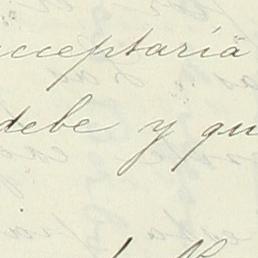 acceptaría
debe y qu